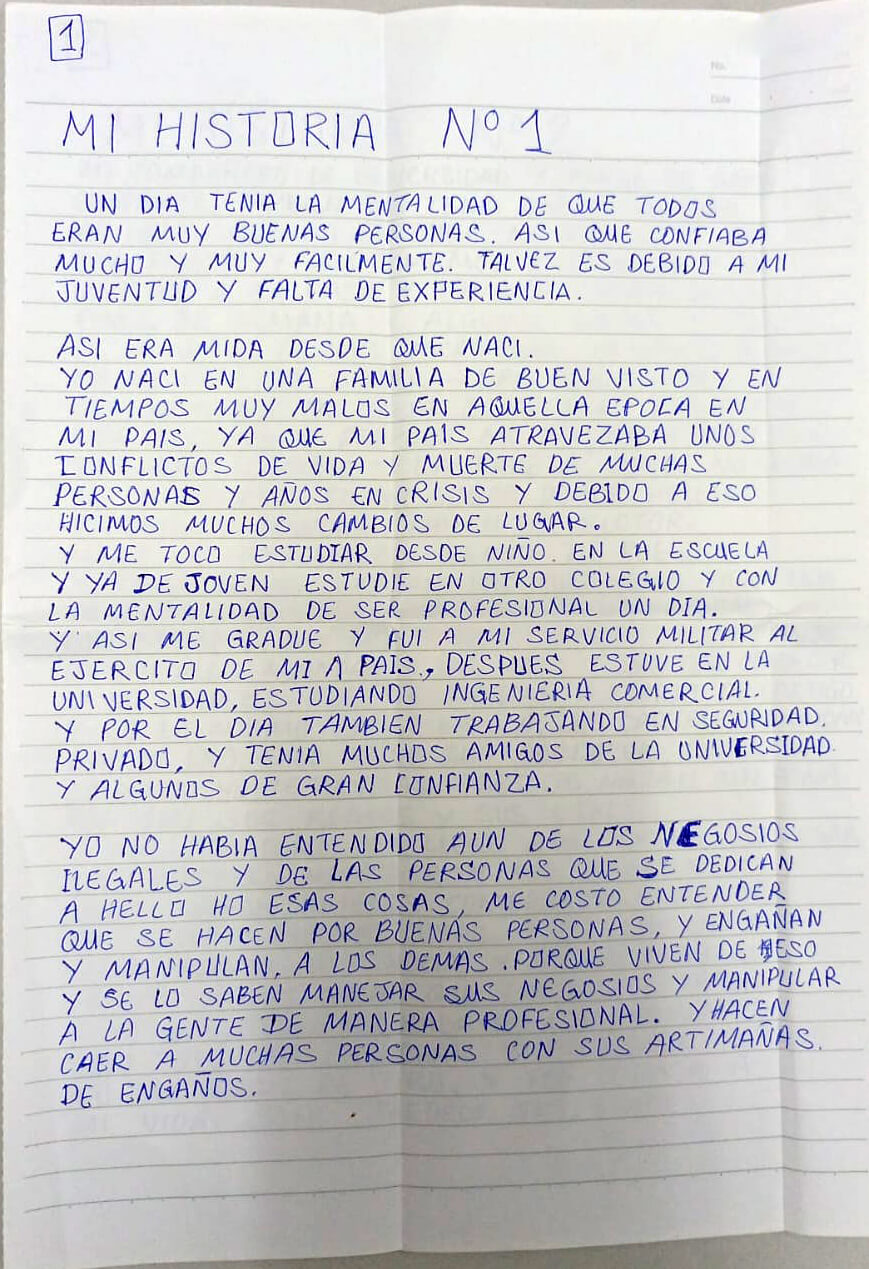 1
No.
Date
MI HISTORIA Nº 1
UN DIA TENIA LA MENTALIDAD DE QUE TODOS
ERAN MUY BUENAS PERSONAS. ASI QUE CONFIABA
MUCHO Y MUY FACILMENTE. TALVEZ ES DEBIDO A MI
JUVENTUD Y FALTA DE EXPERIENCIA.
ASI ERA MIDA DESDE QUE NACI.
YO NACI EN UNA FAMILIA DE BUEN VISTO Y EN
TIEMPOS MUY MALOS EN AQUELLA EPOCA EN
MI PAIS, YA QUE MI PAIS ATRAVEZABA UNOS
CONFLICTOS DE VIDA Y MUERTE DE MUCHAS
PERSONAS Y AÑOS EN CRISIS Y DEBIDO A ESO
HICIMOS MUCHOS CAMBIOS DE LUGAR.
Y ME TOCO ESTUDIAR DESDE NIÑO. EN LA ESCUELA
Y YA DE JOVEN ESTUDIE EN OTRO COLEGIO Y CON
LA MENTALIDAD DE SER PROFESIONAL UN DIA.
Y ASI ME GRADUE Y FUI A MI SERVICIO MILITAR AL
EJERCITO DE MI PAIS., DESPUES ESTUVE EN LA
UNIVERSIDAD, ESTUDIANDO INGENIERIA COMERCIAL.
Y POR EL DIA TAMBIEN TRABAJANDO EN SEGURIDAD.
PRIVADO, Y TENIA MUCHOS AMIGOS DE LA UNIVERSIDAD.
Y ALGUNOS DE GRAN CONFIANZA.
YO NO HABIA ENTENDIDO AUN DE LOS NEGOSIOS
ILEGALES Y DE LAS PERSONAS QUE SE DEDICAN
A HELLO HO ESAS COSAS, ME COSTO ENTENDER
QUE SE HACEN POR BUENAS PERSONAS, Y ENGAÑAN
Y MANIPULAN. A LOS DEMAS. PORQUE VIVEN DE ESO
Y SE LO SABEN MANEJAR SUS NEGOSIOS Y MANIPULAR
A LA GENTE DE MANERA PROFESIONAL. Y HACEN
CAER A MUCHAS PERSONAS CON SUS ARTIMAÑAS.
DE ENGAÑOS.